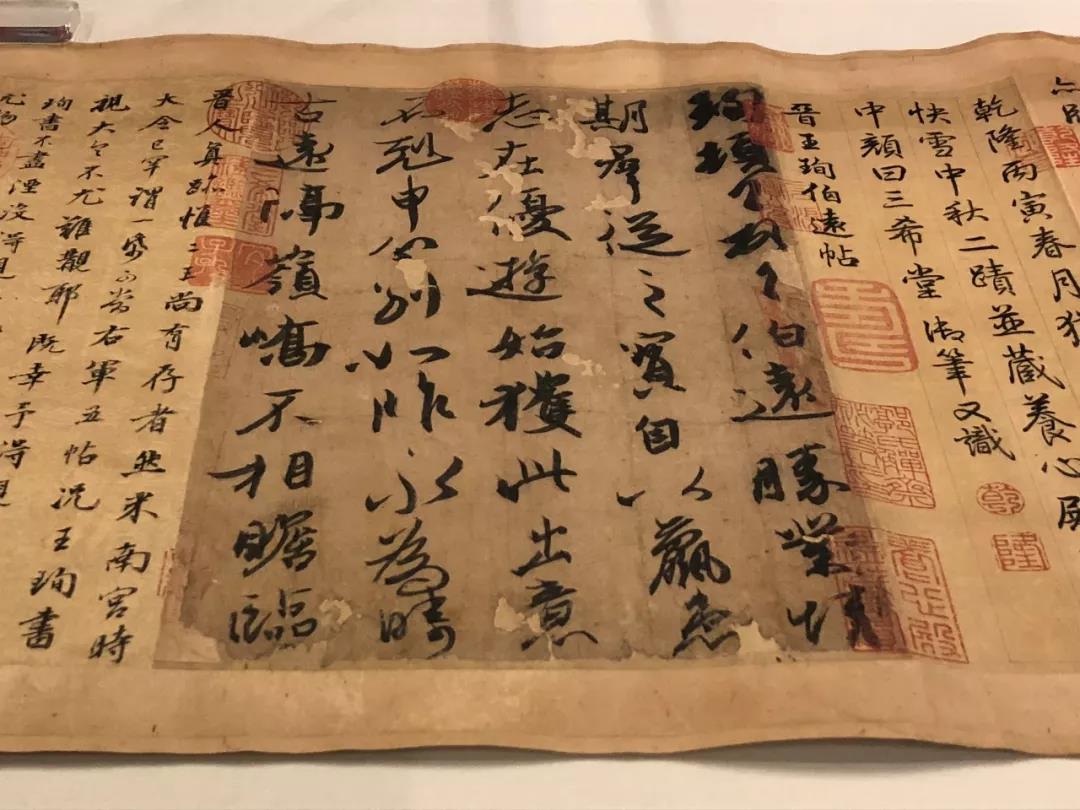 乾隆丙寅春月
快雪中秋二蹟並藏養心殿
中顏曰三希堂御筆又識
晉王珣伯遠帖
珣頓首頓首伯遠勝業情
期群從之寶自以羸患
志在優遊始獲此出意
不剋申分別如昨永為疇
古遠隔嶺嶠不相瞻臨
晉人真跡惟二王尚有存者然米南宮時
大令已罕謂一紙可當右軍五帖況王珣書
視大令不尤難覯耶既幸予得見
珣書不盡湮沒得見
尤物